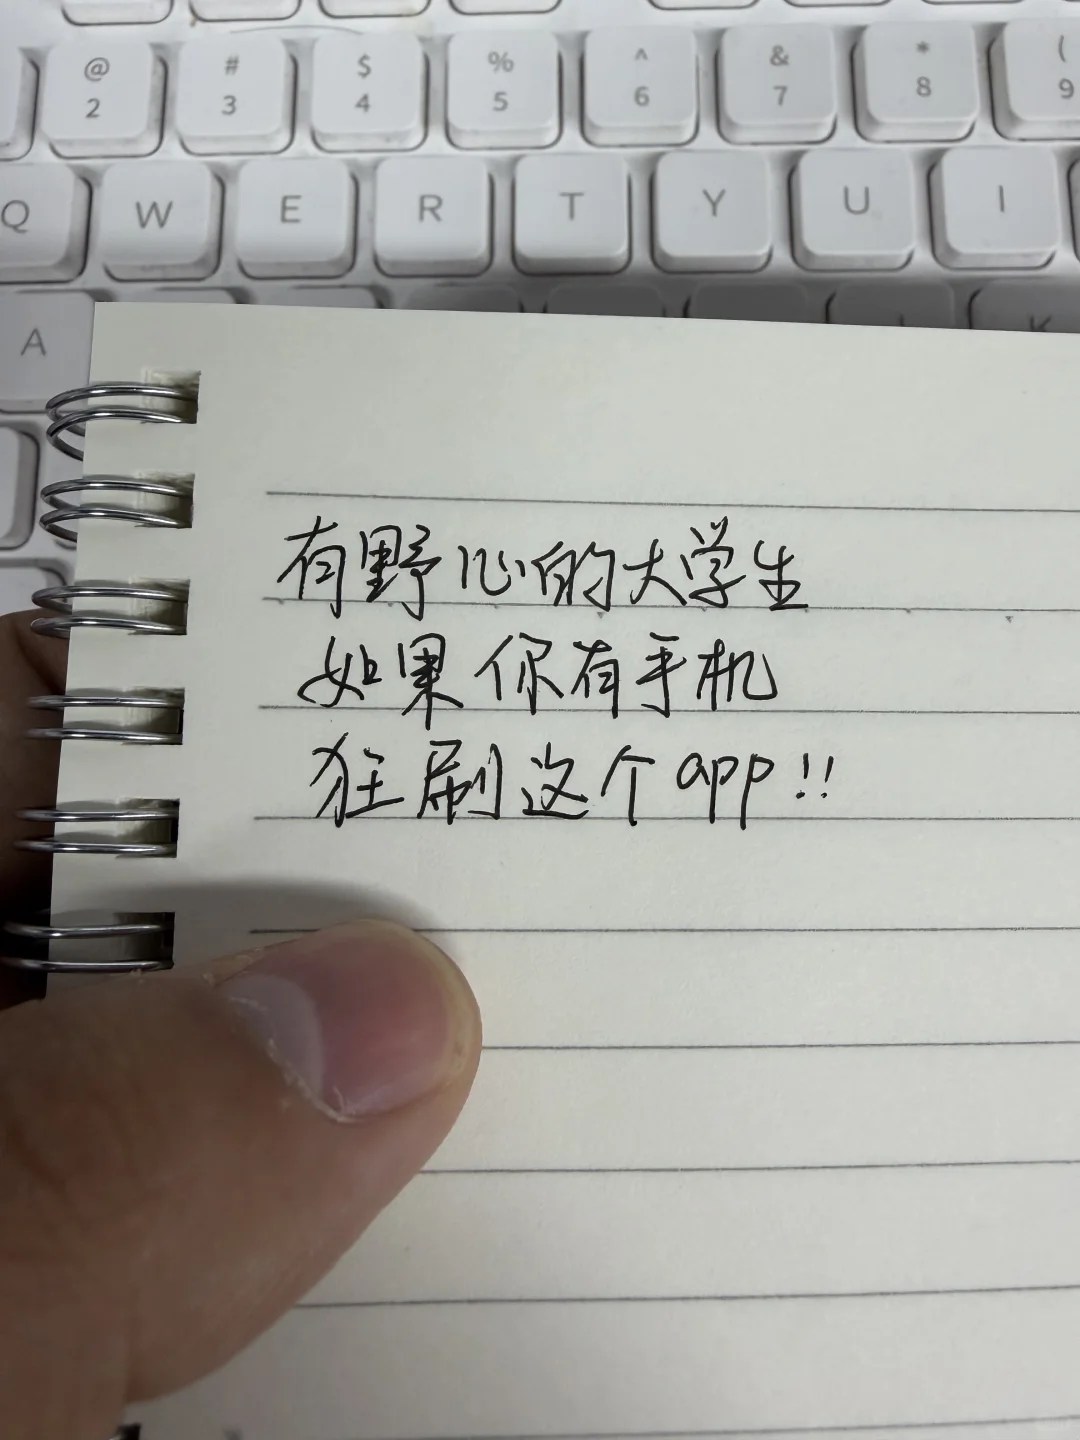 @ # $ % ^ & * (
2 3 4 5 6 7 8 9
Q W E R T Y U I
A K
有野心的大学生
如果你有手机
狂刷这个app!!